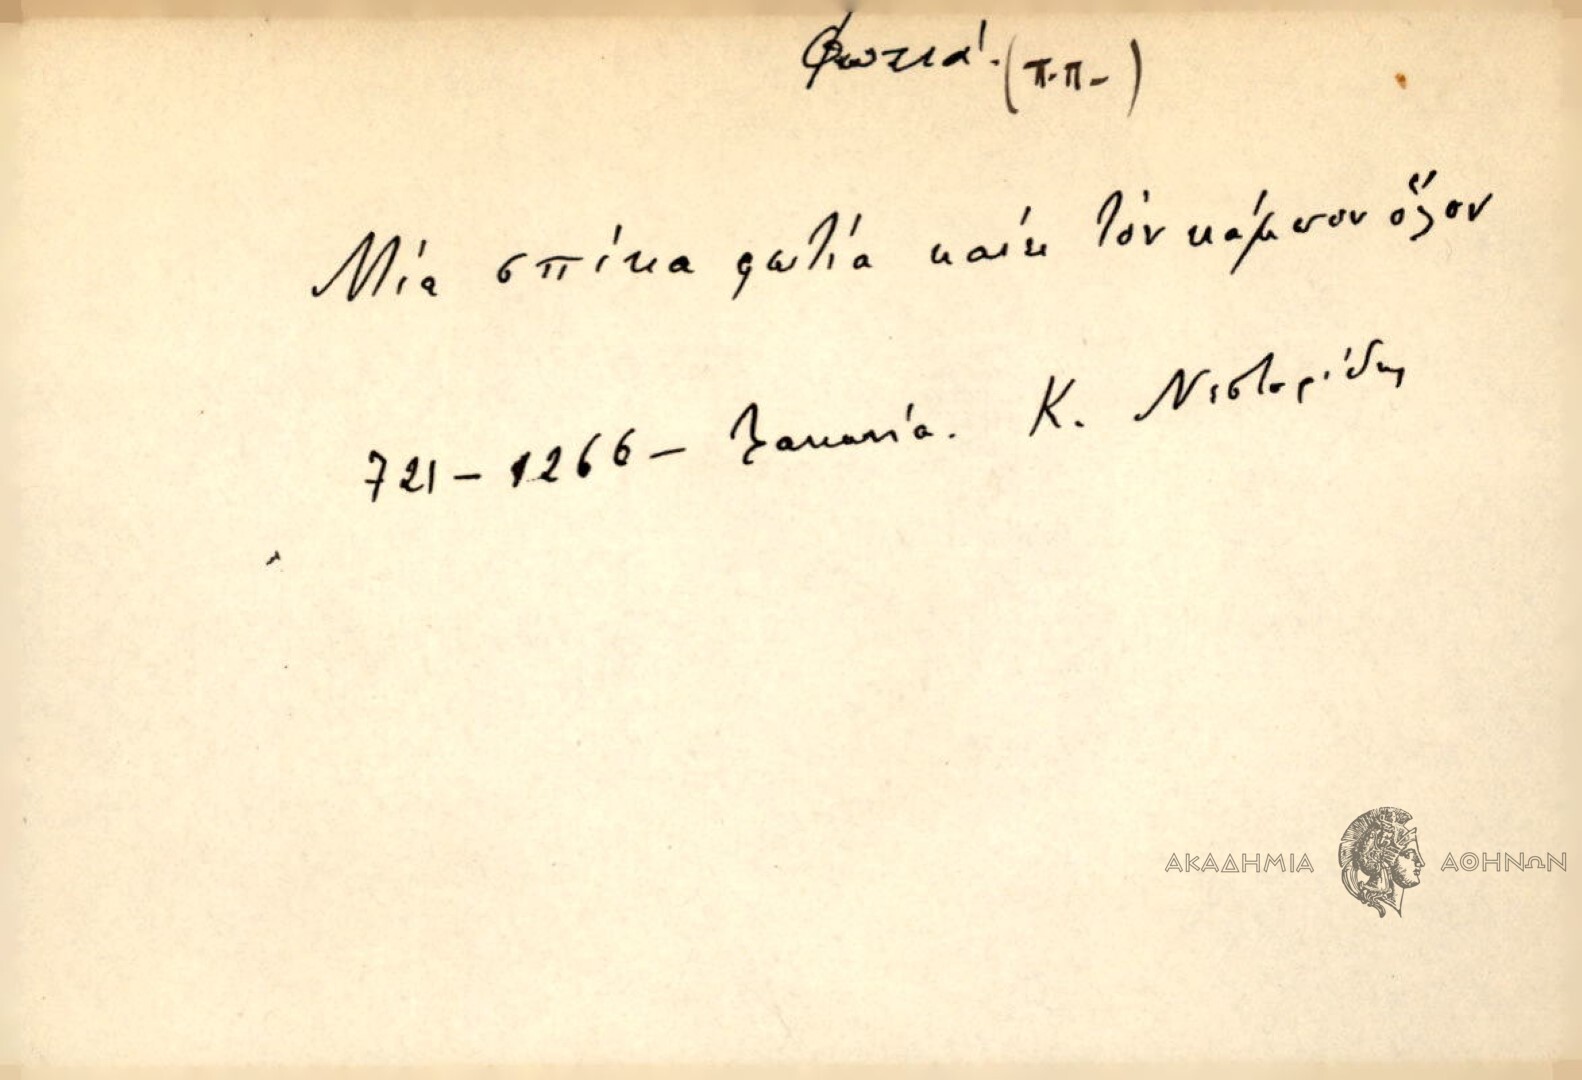 Φωτιά. (π.π-)
Μία σπίκα φωτία καίει τόν κάμπον ὅλον
721 - 1266 - Τσακωνία. Κ. Νεστορίδης
ΑΚΑΔΗΜΙΑ ΑΘΗΝΩΝ